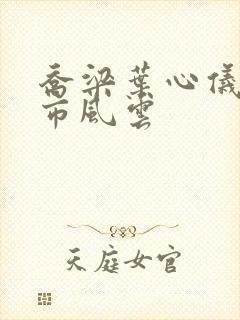 喬梁葉心儀
市風雲
天庭女官